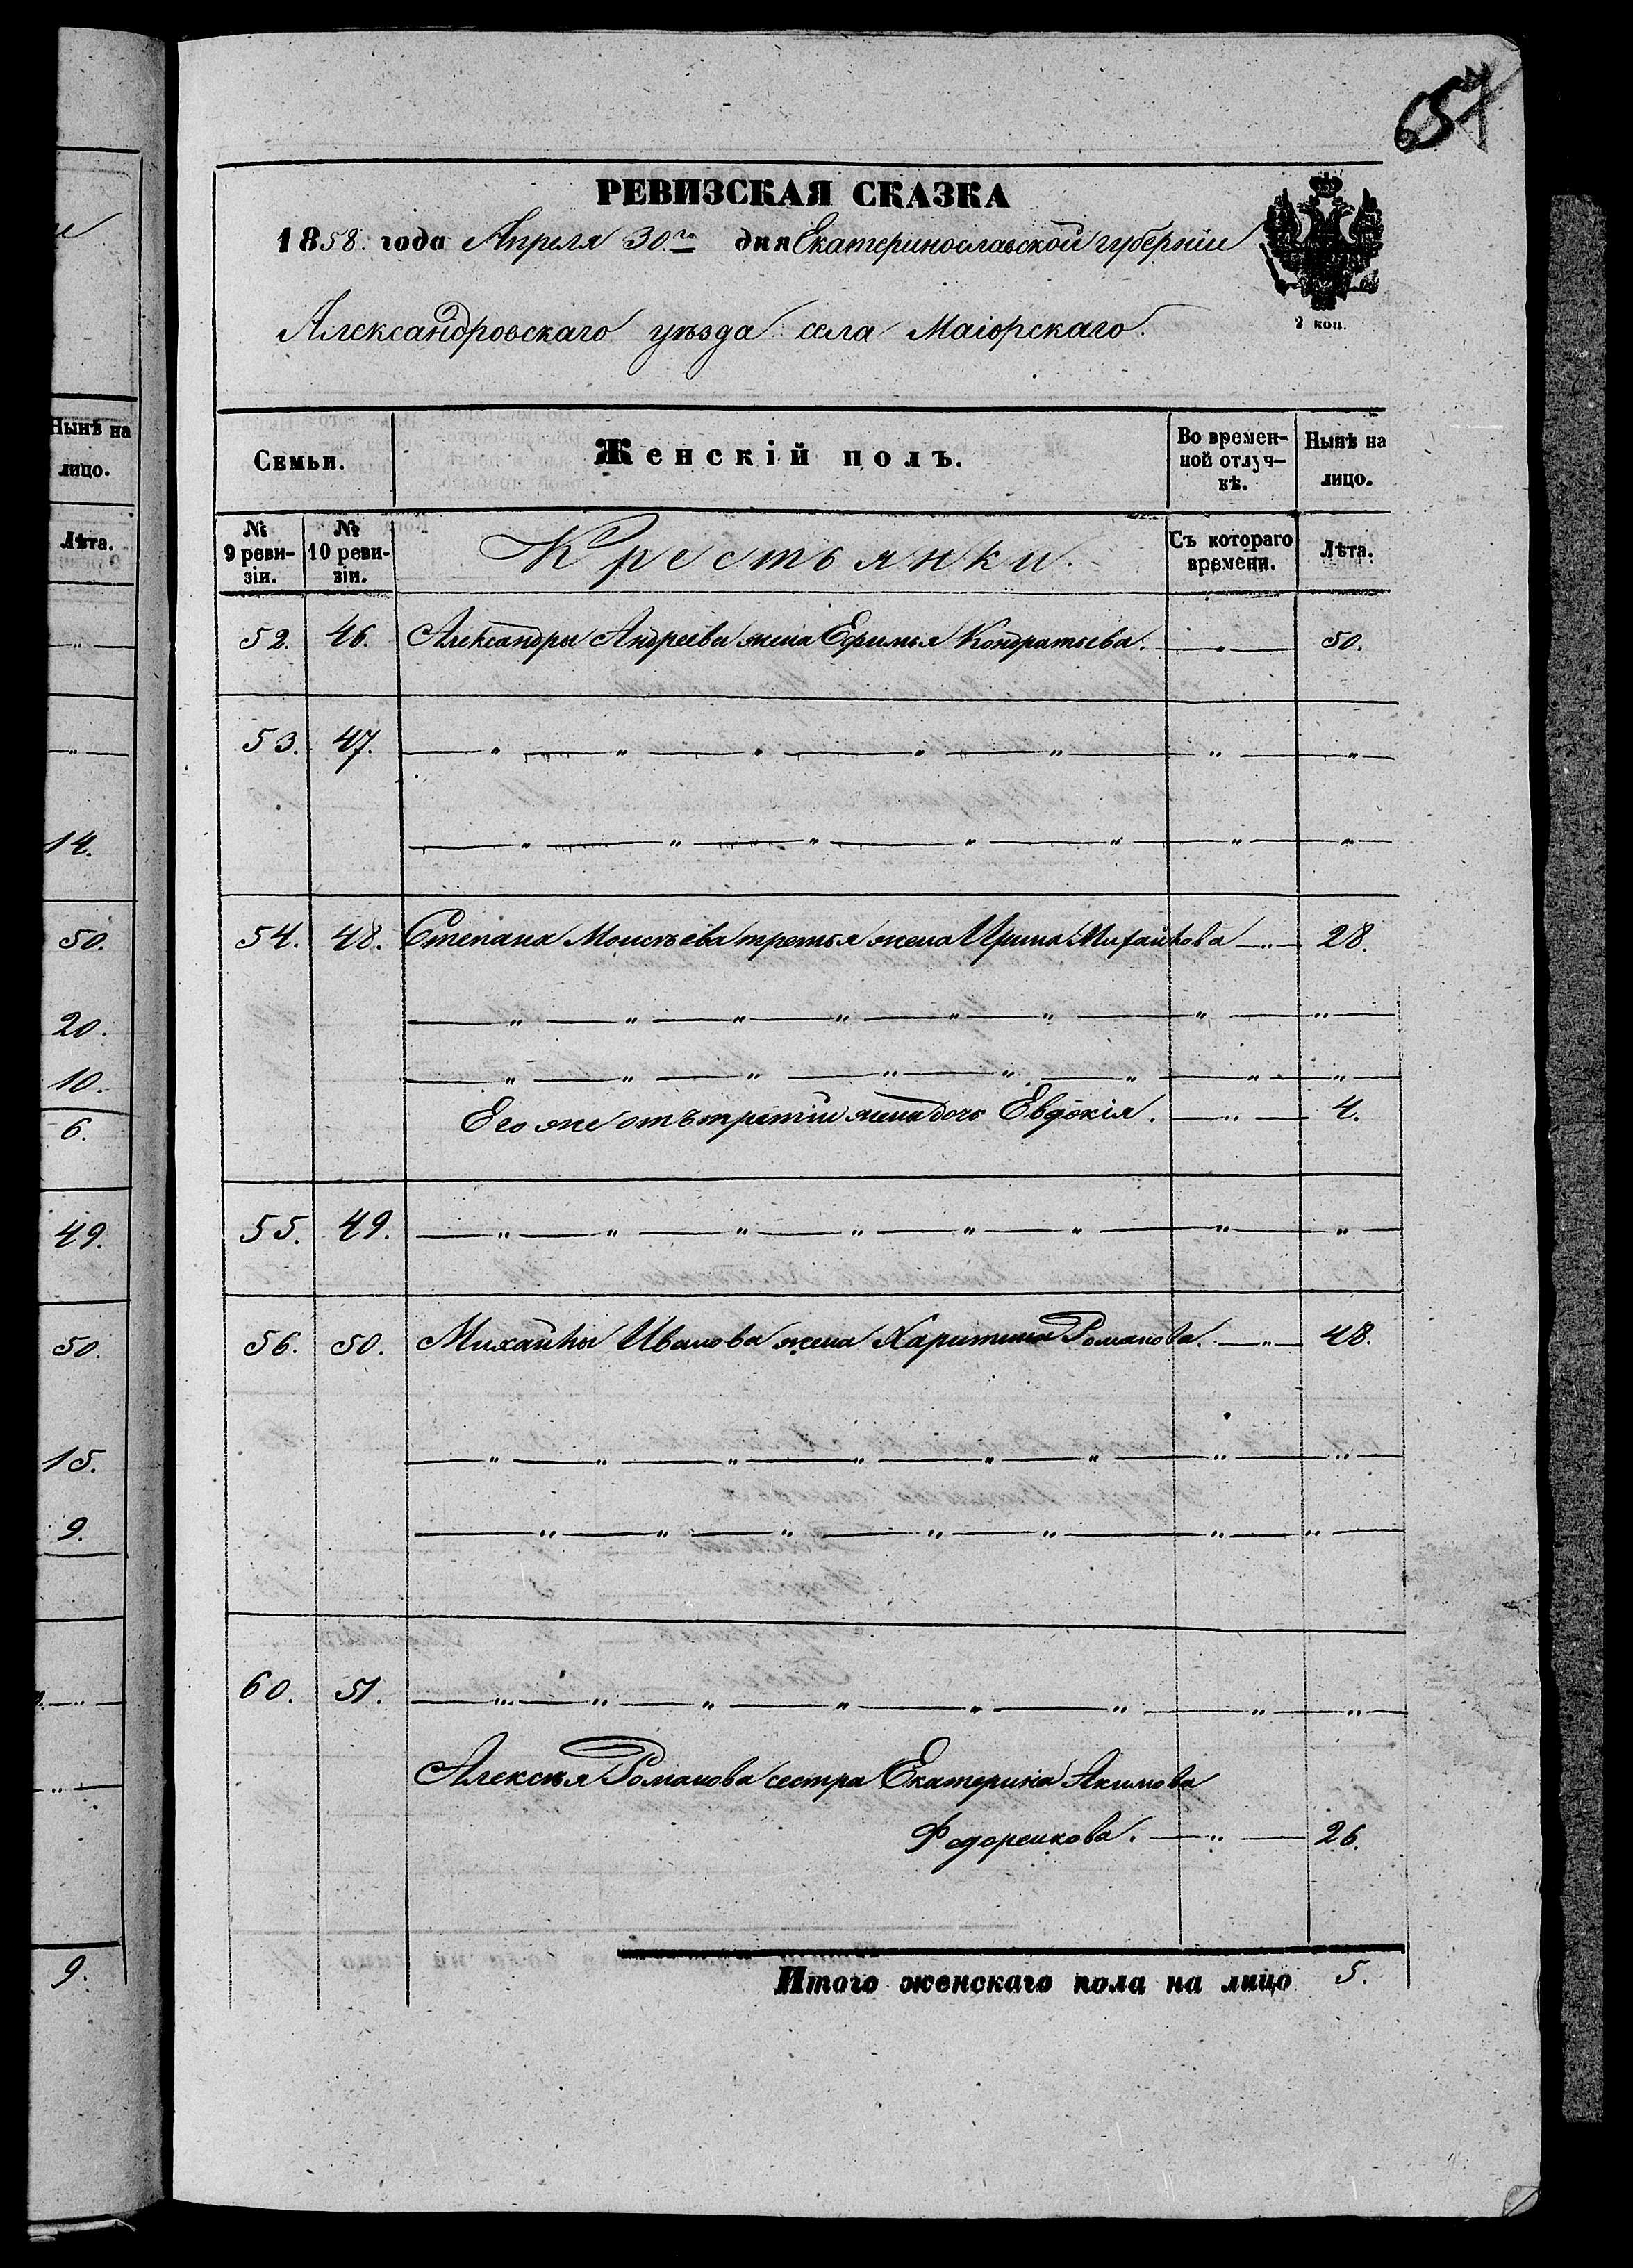 657
РЕВИЗСКАЯ СКАЗКА
1858. года Апреля 30.го дня Екатеринославской губерніи
2 коп.
Александровскаго уѣзда села Маіорскаго.
Нынѣ на
лицо.
Лѣта.
14.
50.
20.
10.
6.
49.
50.
15.
9.
9.
Семьи.
Женскій полъ.
Во времен-
ной отлуч-
кѣ.
Нынѣ на
лицо.
№
9 реви-
зіи.
№
10 реви-
зіи.
Крестьянки.
Съ котораго
времени.
Лѣта.
52. 46. Александры Андреева жена Ефимья Кондратьева. — „ — 50.
53. 47. — „ — „ — „ — „ — „ — „ — „ —
— „ — „ — „ — „ — „ — „ — „ —
54. 48. Степана Моисѣева третья жена Ирина Михайлова — „ — 28.
— „ — „ — „ — „ — „ — „ — „ — „ —
— „ — „ — „ — „ — „ — „ — „ — „ —
Его же отъ третіи жены дочь Евдокія. — „ — 4.
55. 49. — „ — „ — „ — „ — „ — „ — „ — „ —
56. 50. Михайлы Иванова жена Харитина Романова. — „ — 48.
— „ — „ — „ — „ — „ — „ — „ — „ —
— „ — „ — „ — „ — „ — „ — „ —
60. 51. — „ — „ — „ — „ — „ — „ — „ — „ —
Алексѣя Романова сестра Екатерина Акимова
Федоренкова. — „ — 26.
Итого женскаго пола на лицо 5.